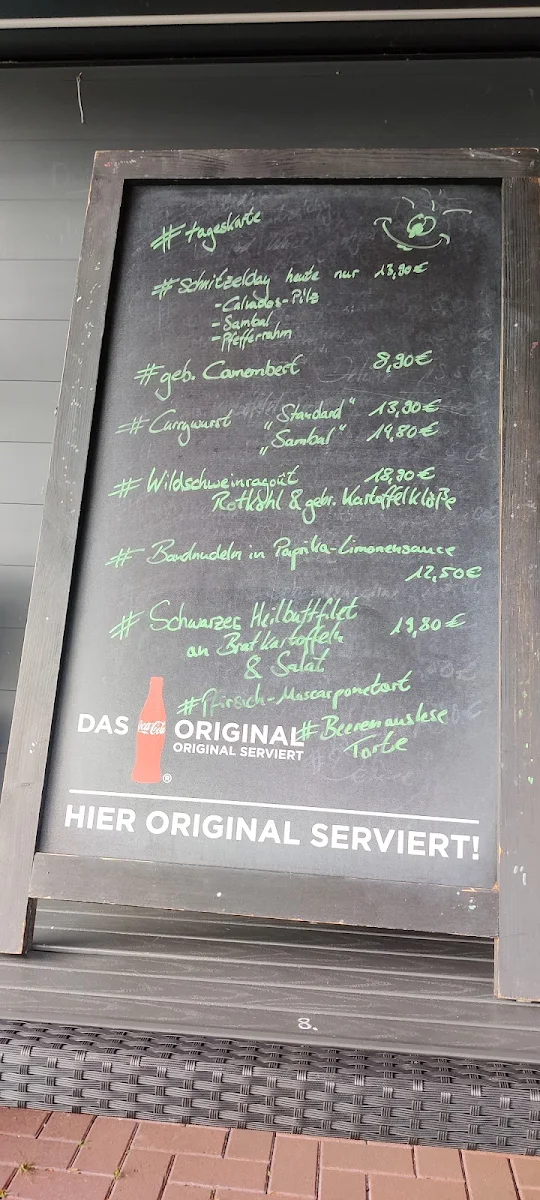 # Tageskarte
# Schnitzelday heute nur 13,90€
- Calvados-Pilz
- Sambal
- Pfefferrahm
# geb. Camembert 8,90€
# Currywurst "Standard" 13,90€
"Sambal" 14,80€
# Wildschweinragoût 18,90€
Rotkohl & gebr. Kartoffelklöße
# Bandnudeln in Paprika-Limonensauce
12,50€
# Schwarzer Heilbuttfilet 19,80€
an Bratkartoffeln
& Salat
# Pfirsich-Mascarponetort
# Beerenauslese
Torte
DAS Coca-Cola ORIGINAL
ORIGINAL SERVIERT
®
HIER ORIGINAL SERVIERT!
8.